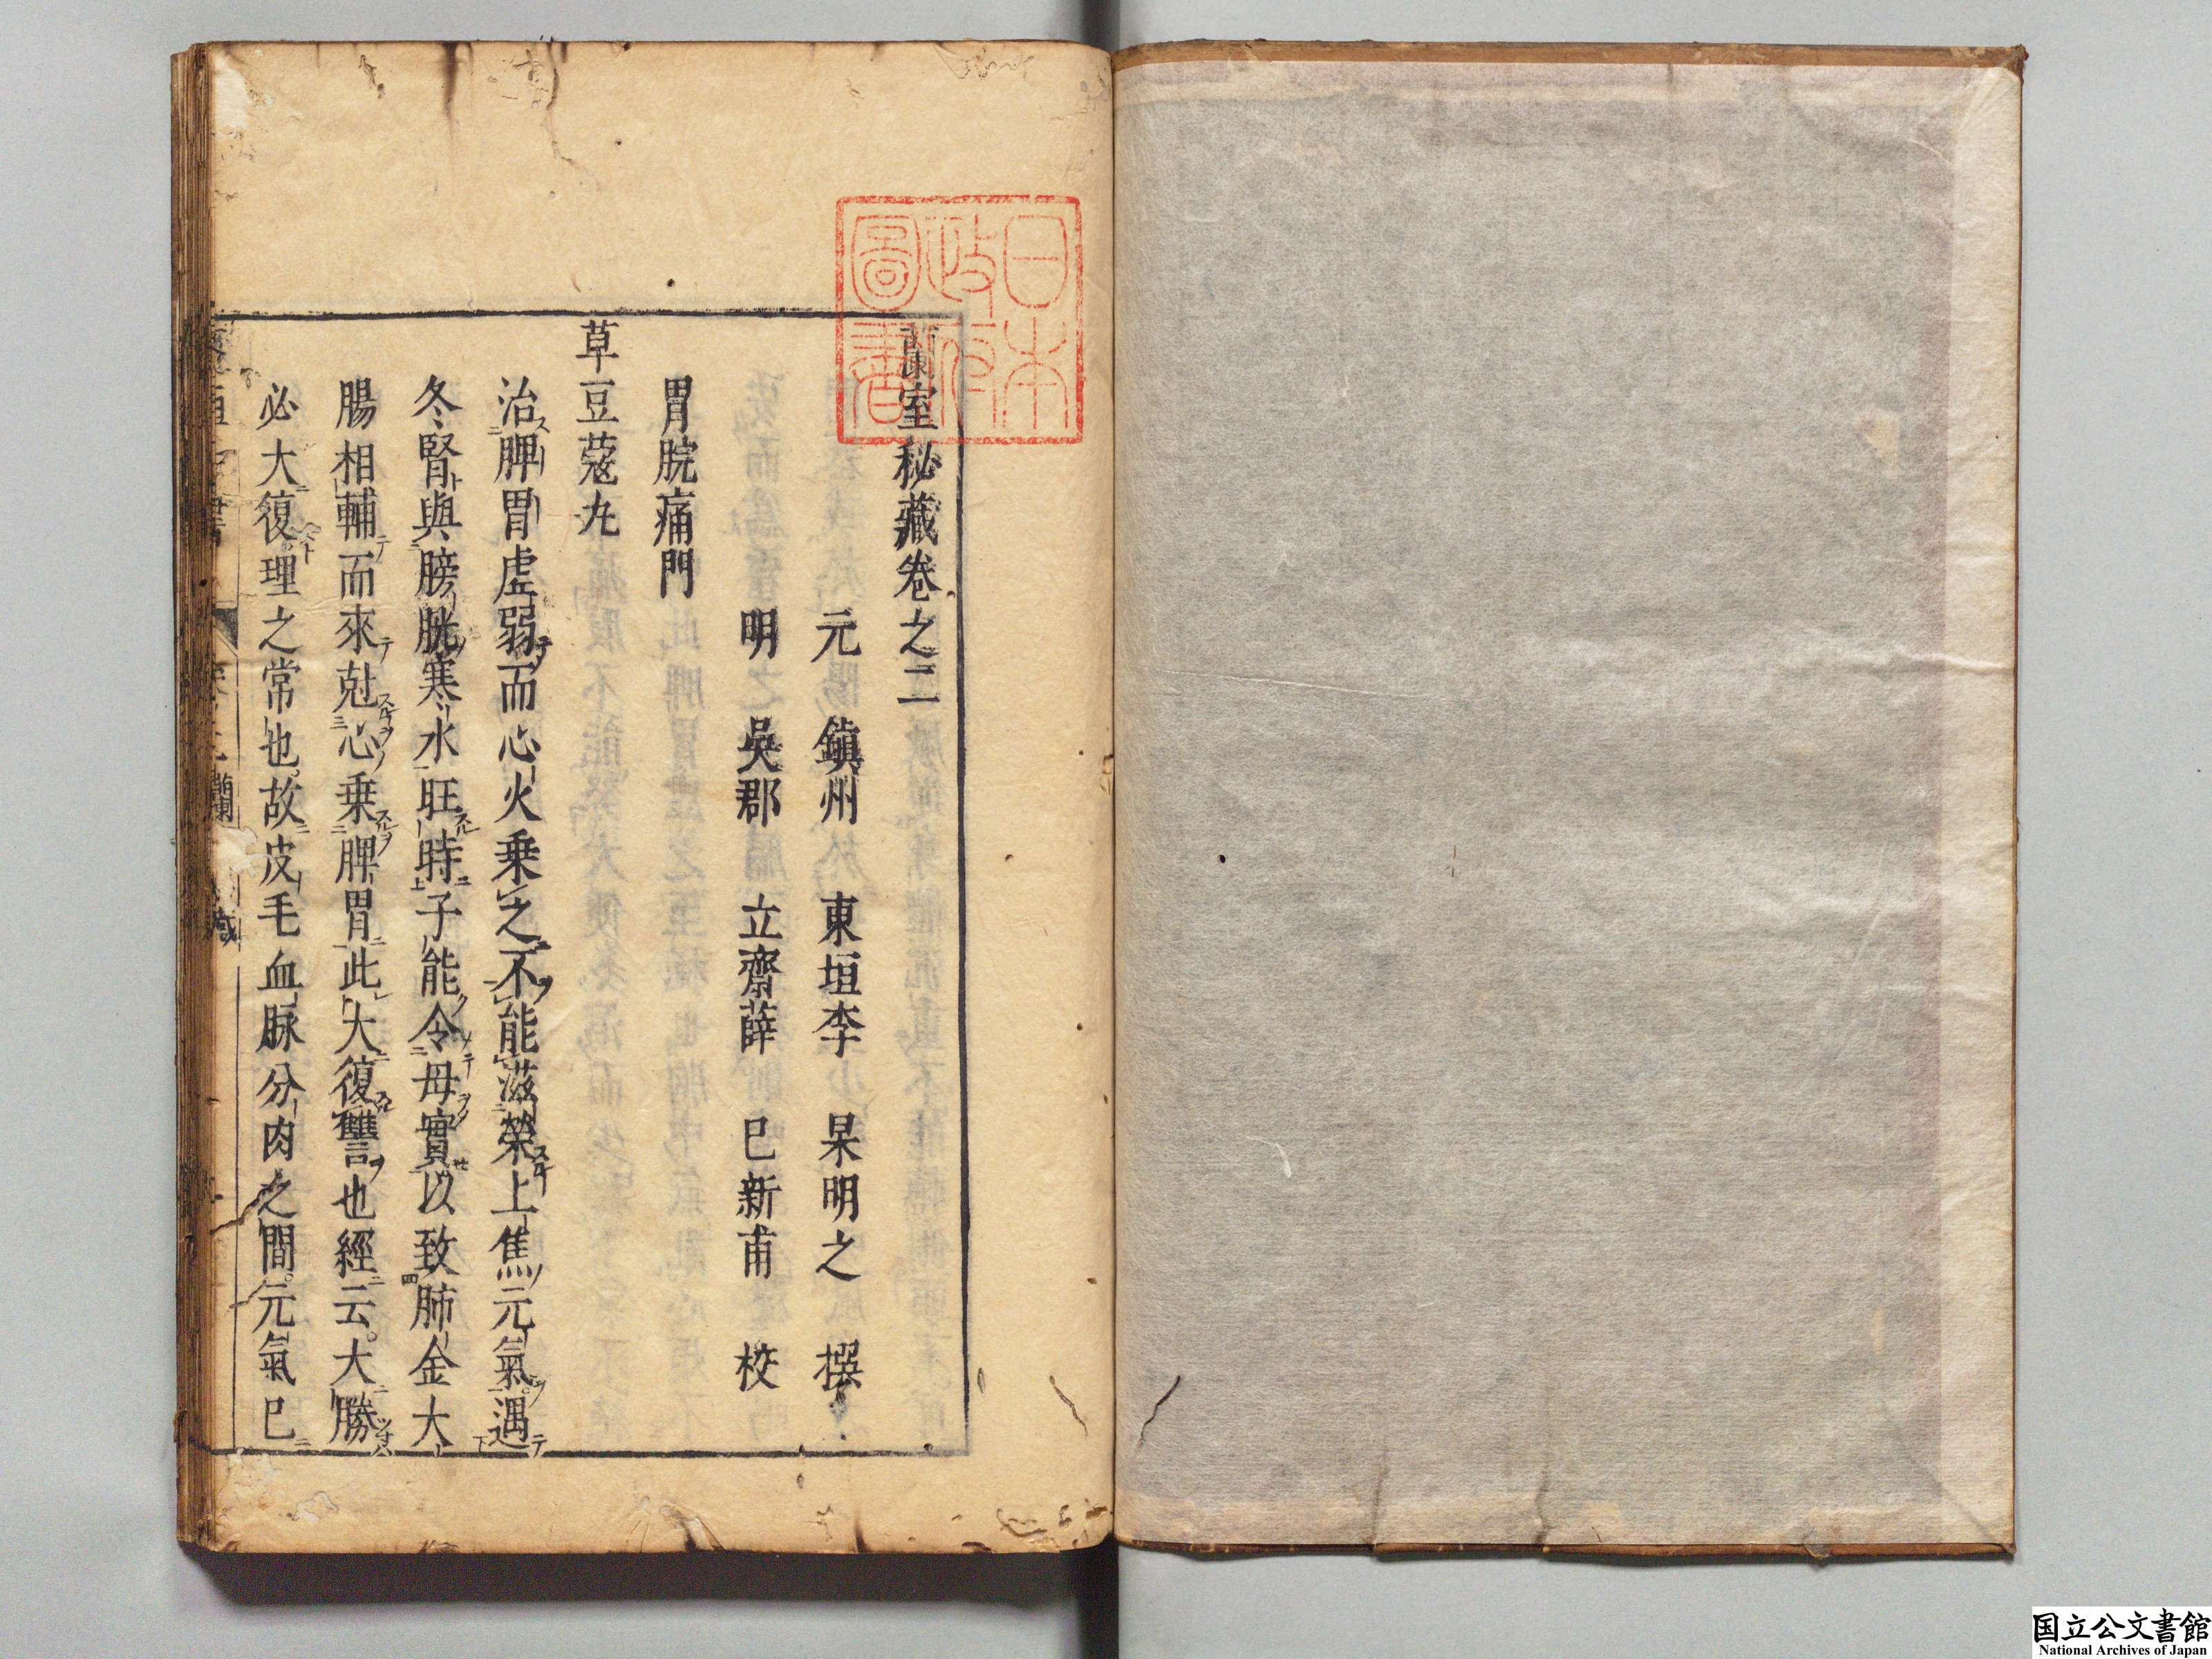 蘭室秘藏卷之二
元 鎮州 東垣李 杲明之 撰
明 吳郡 立齋薛 已新甫 校
胃脘痛門
草豆蔻丸
治脾胃虛弱而心火乗之不能滋榮上焦元氣遇
冬腎與膀胱寒水旺時子能令母實以致肺金大
腸相輔而來尅心乗脾胃此大復讐也經云大勝
必大復理之常也故皮毛血脉分肉之間元氣已
日本政府圖書
国立公文書館
National Archives of Japan